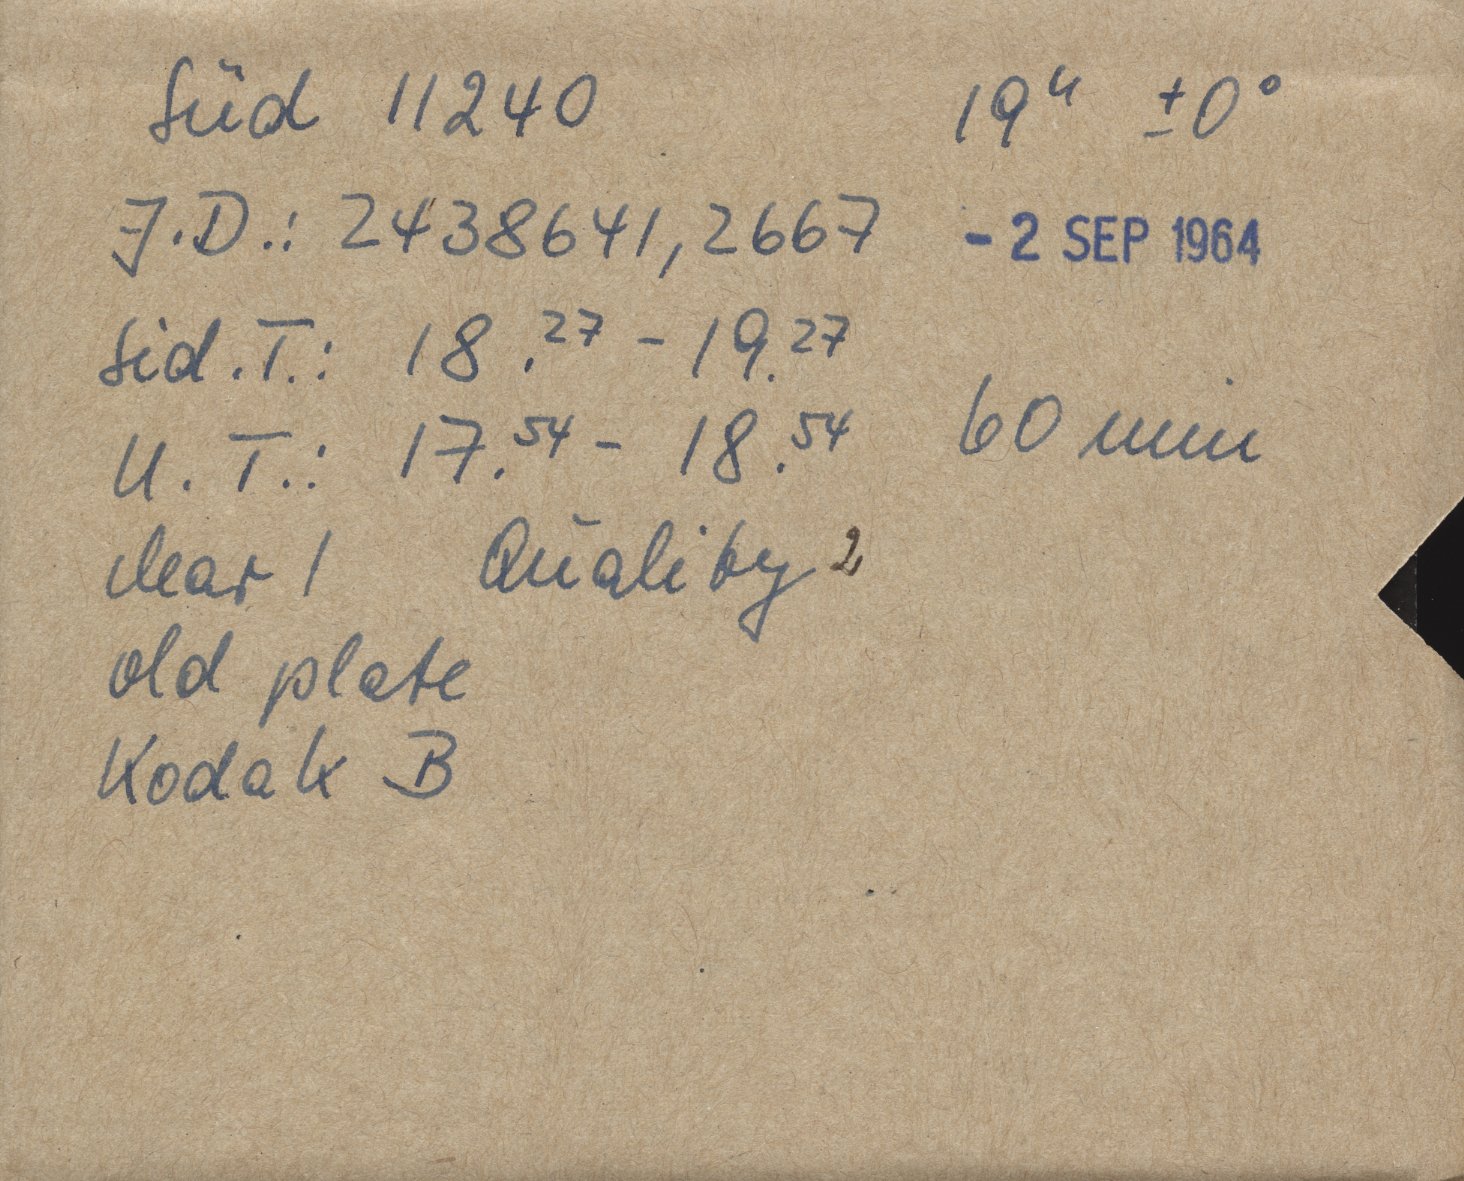 Süd 11240 19h ±0°
J.D.: 2438641,2667 - 2 SEP 1964
Sid.T.: 18.27 - 19.27
U.T.: 17.54 - 18.54 60 min
clear 1 Quality 2
old plate
Kodak B